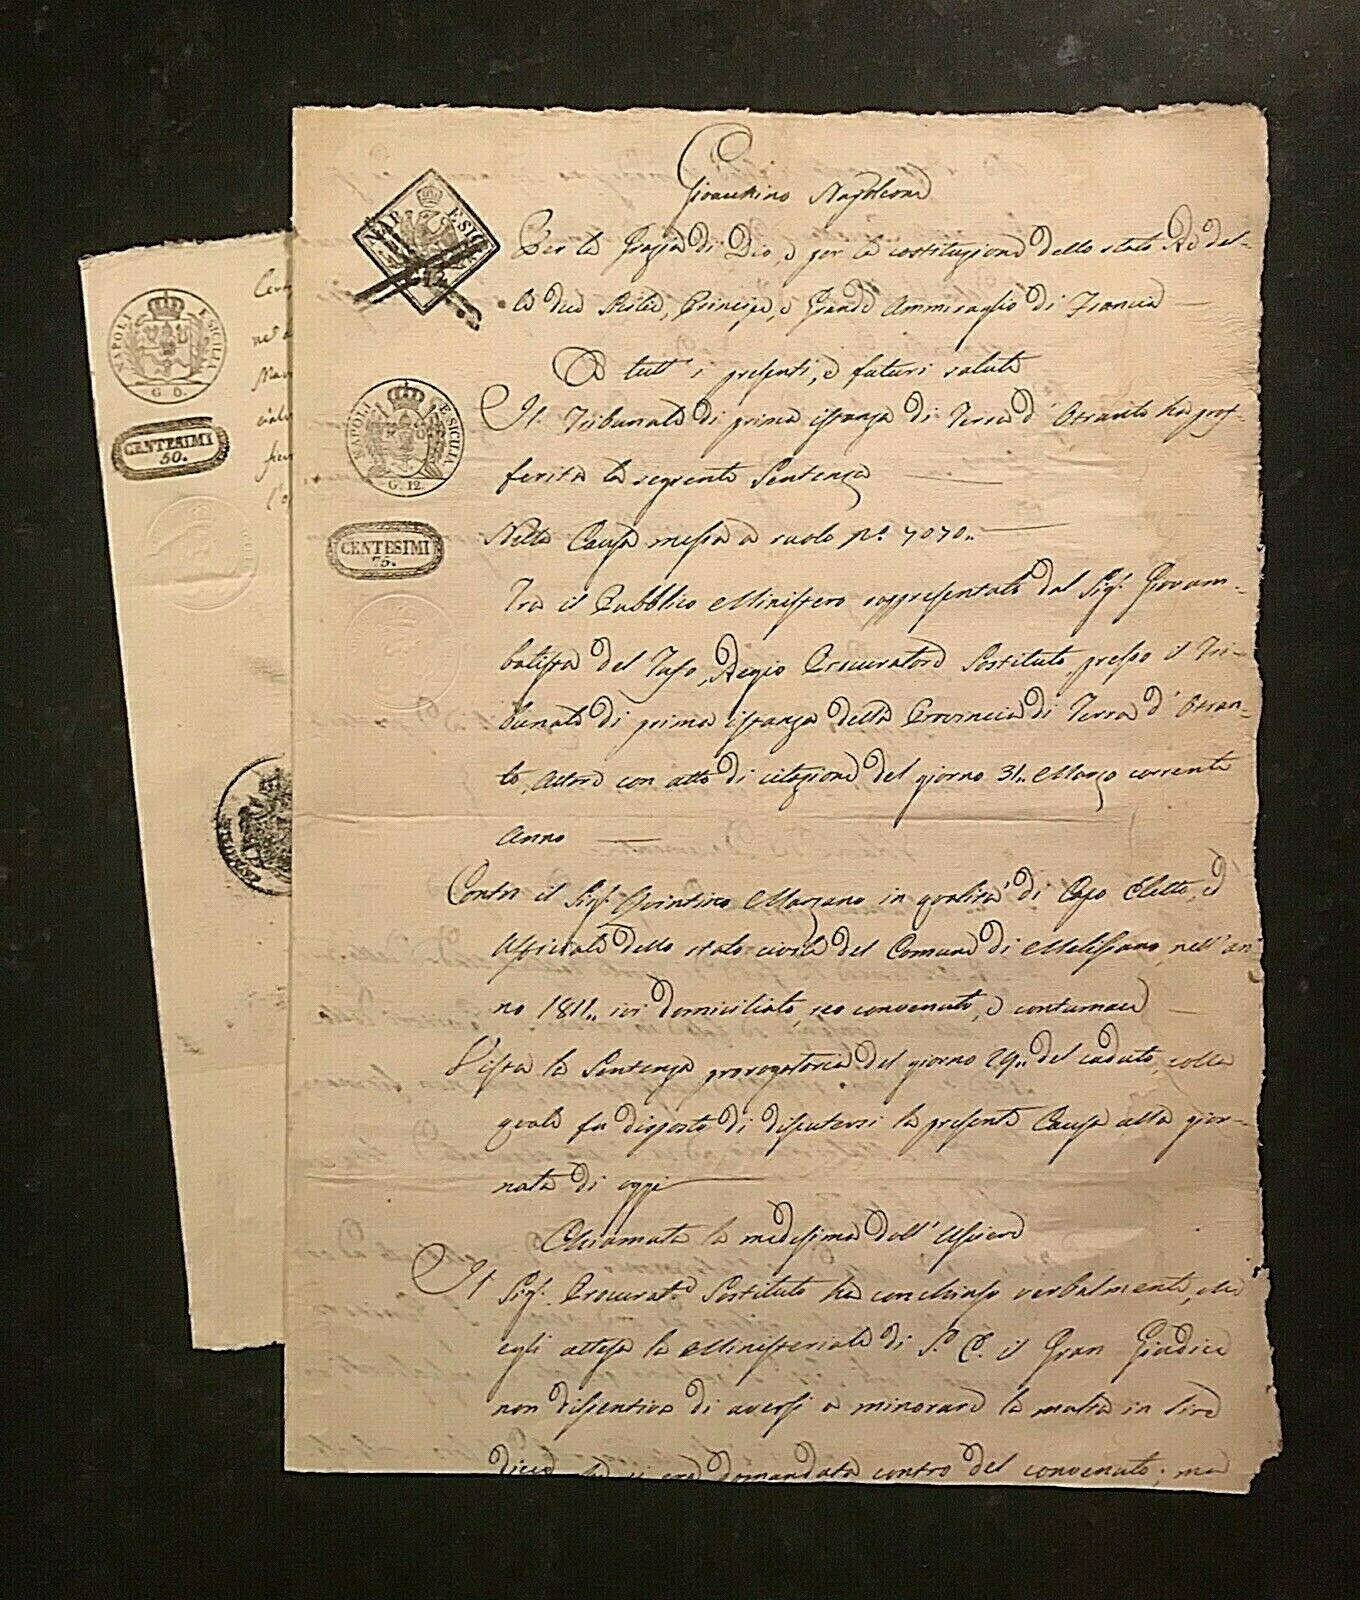 NAPOLI E SICILIA
G. 6.
CENTESIMI
50.
NAP. E SIC.
NAPOLI E SICILIA
G. 12.
CENTESIMI
75.
Gioacchino Napoleone
Per la Grazia di Dio, e per la costituzione dello stato Re del-
le due Sicilie, Principe, e Grande Ammiraglio di Francia
A tutt' i presenti, e futuri salute
Il Tribunale di prima istanza di Terra d' Otranto ha prof-
ferita la seguente Sentenza
Nella Causa messa a ruolo nº. 7070..
Tra il Pubblico Ministero rappresentato dal Sigr. Giovam-
batista del Tufo, Regio Procuratore Sostituto, presso il Tri-
bunale di prima istanza della Provincia di Terra d' Otran-
to, Attore con atto di citazione del giorno 31.. Marzo corrente
Anno
Contro il Sigr. Quintino Marzano in qualità di Capo Eletto, ed
Affiziale dello stato civile del Comune di Melissano, nell' an-
no 1811.. ivi domiciliato, reo convenuto, e contumace
Vista la Sentenza prorogatoria del giorno 29.. del caduto, colla
quale fu disposto di discutersi la presente Causa alla gior-
nata di oggi
Chiamata la medesima dall' Usciere
Il Sigr. Procurate. Sostituto ha conchiuso verbalmente, che
egli attesa la Ministeriale di S. E. il Gran Giudice
non dissentiva di aversi a minorare la multa in lire
dieci domandata contro del convenuto; ma